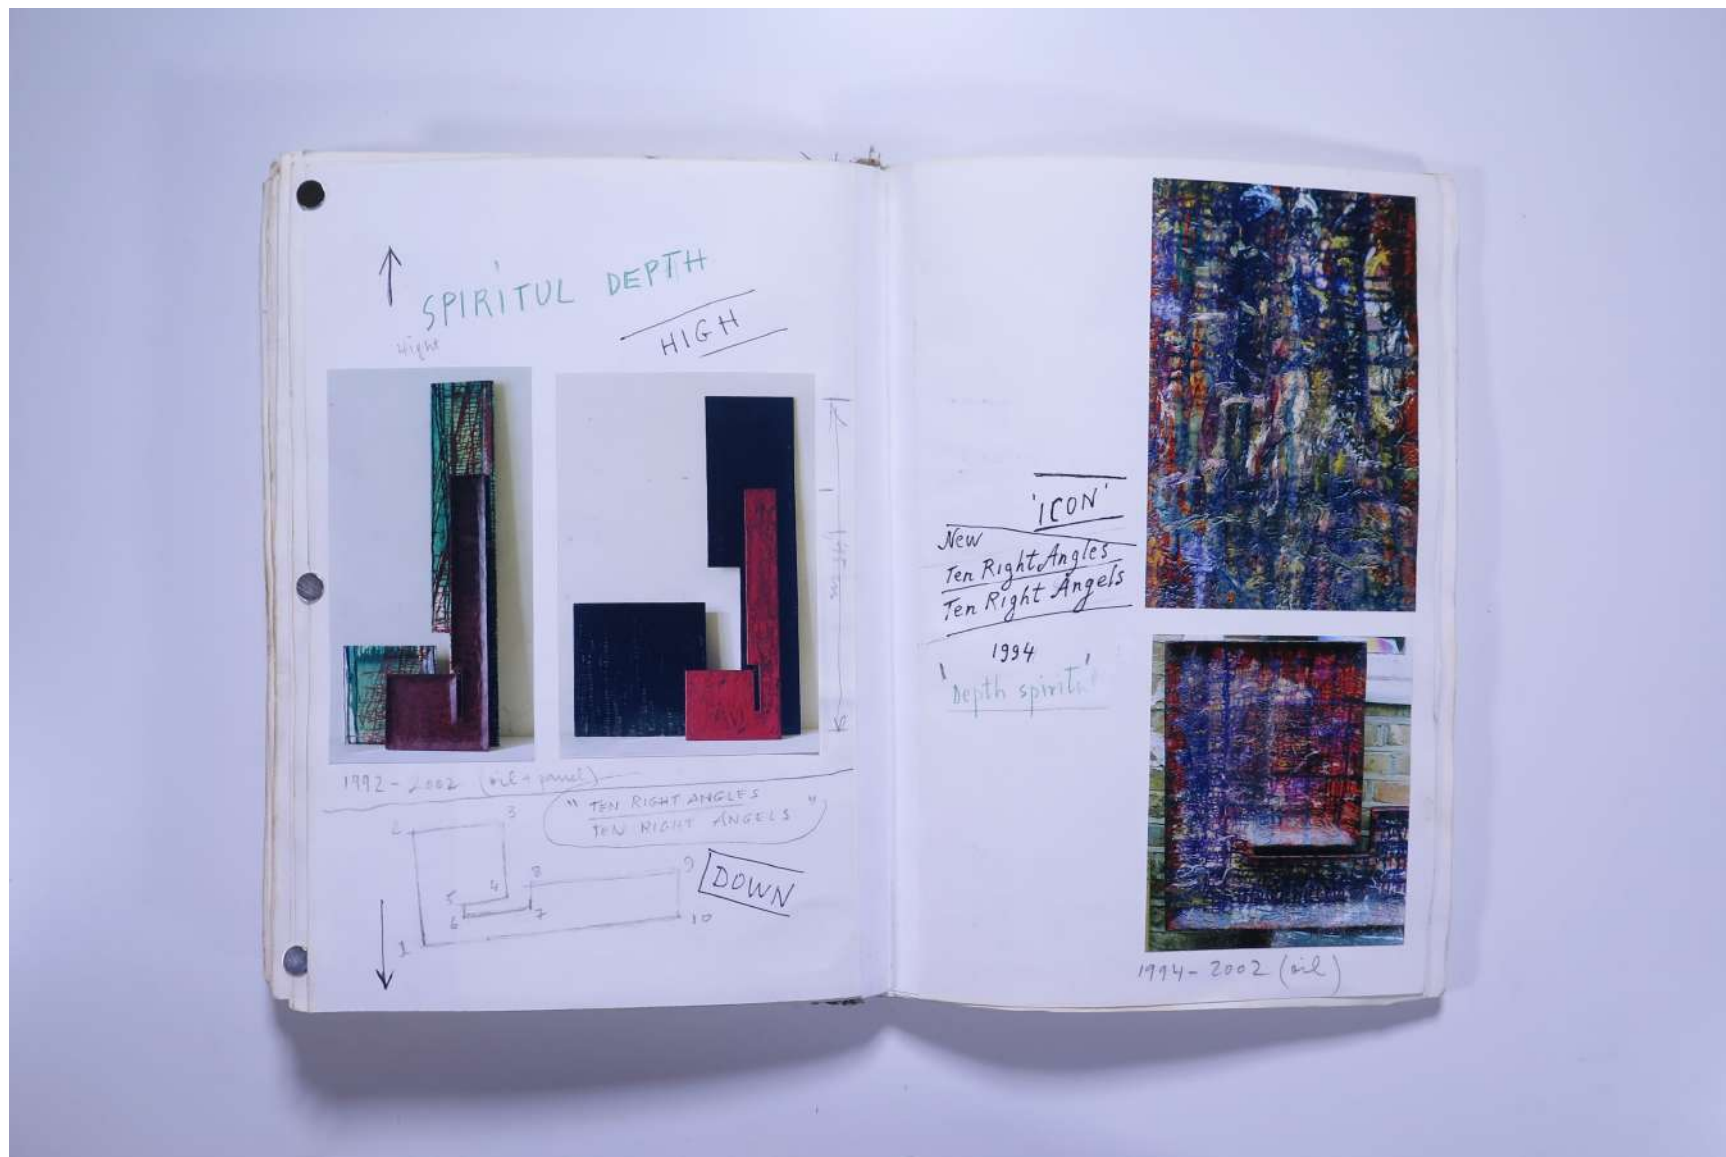 SPIRITUL DEPTH
Hight
HIGH
1992-2002 (oil + panel)
"TEN RIGHT ANGLES
TEN RIGHT ANGELS"
2
3
8
9
5
4
6
7
10
1
DOWN
'ICON'
New
Ten Right Angles
Ten Right Angels
1994
'Depth spiritu'
1994-2002 (oil)